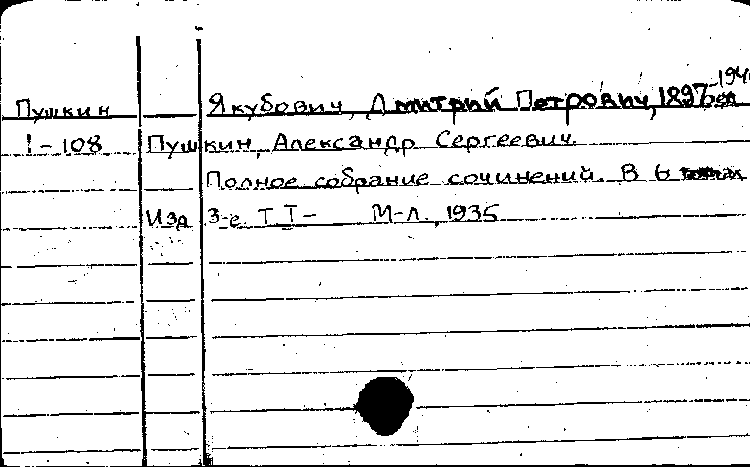 Пушкин Якубович, Дмитрий Петрович, 1897-194
1-108 Пушкин, Александр Сергеевич.
Полное собрание сочинений. В 6 томах
Изд 3-е. Т I- М-Л., 1935